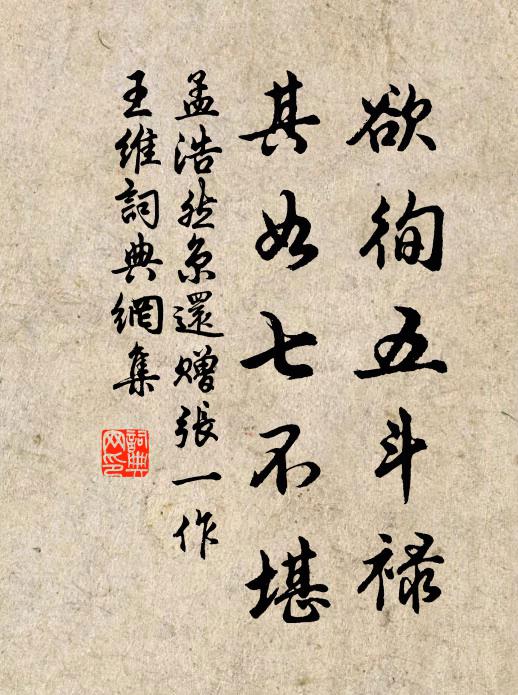 欲徇五斗禄
其如七不堪
孟浩然京還贈張一作
王維詞典網集
詞典网印